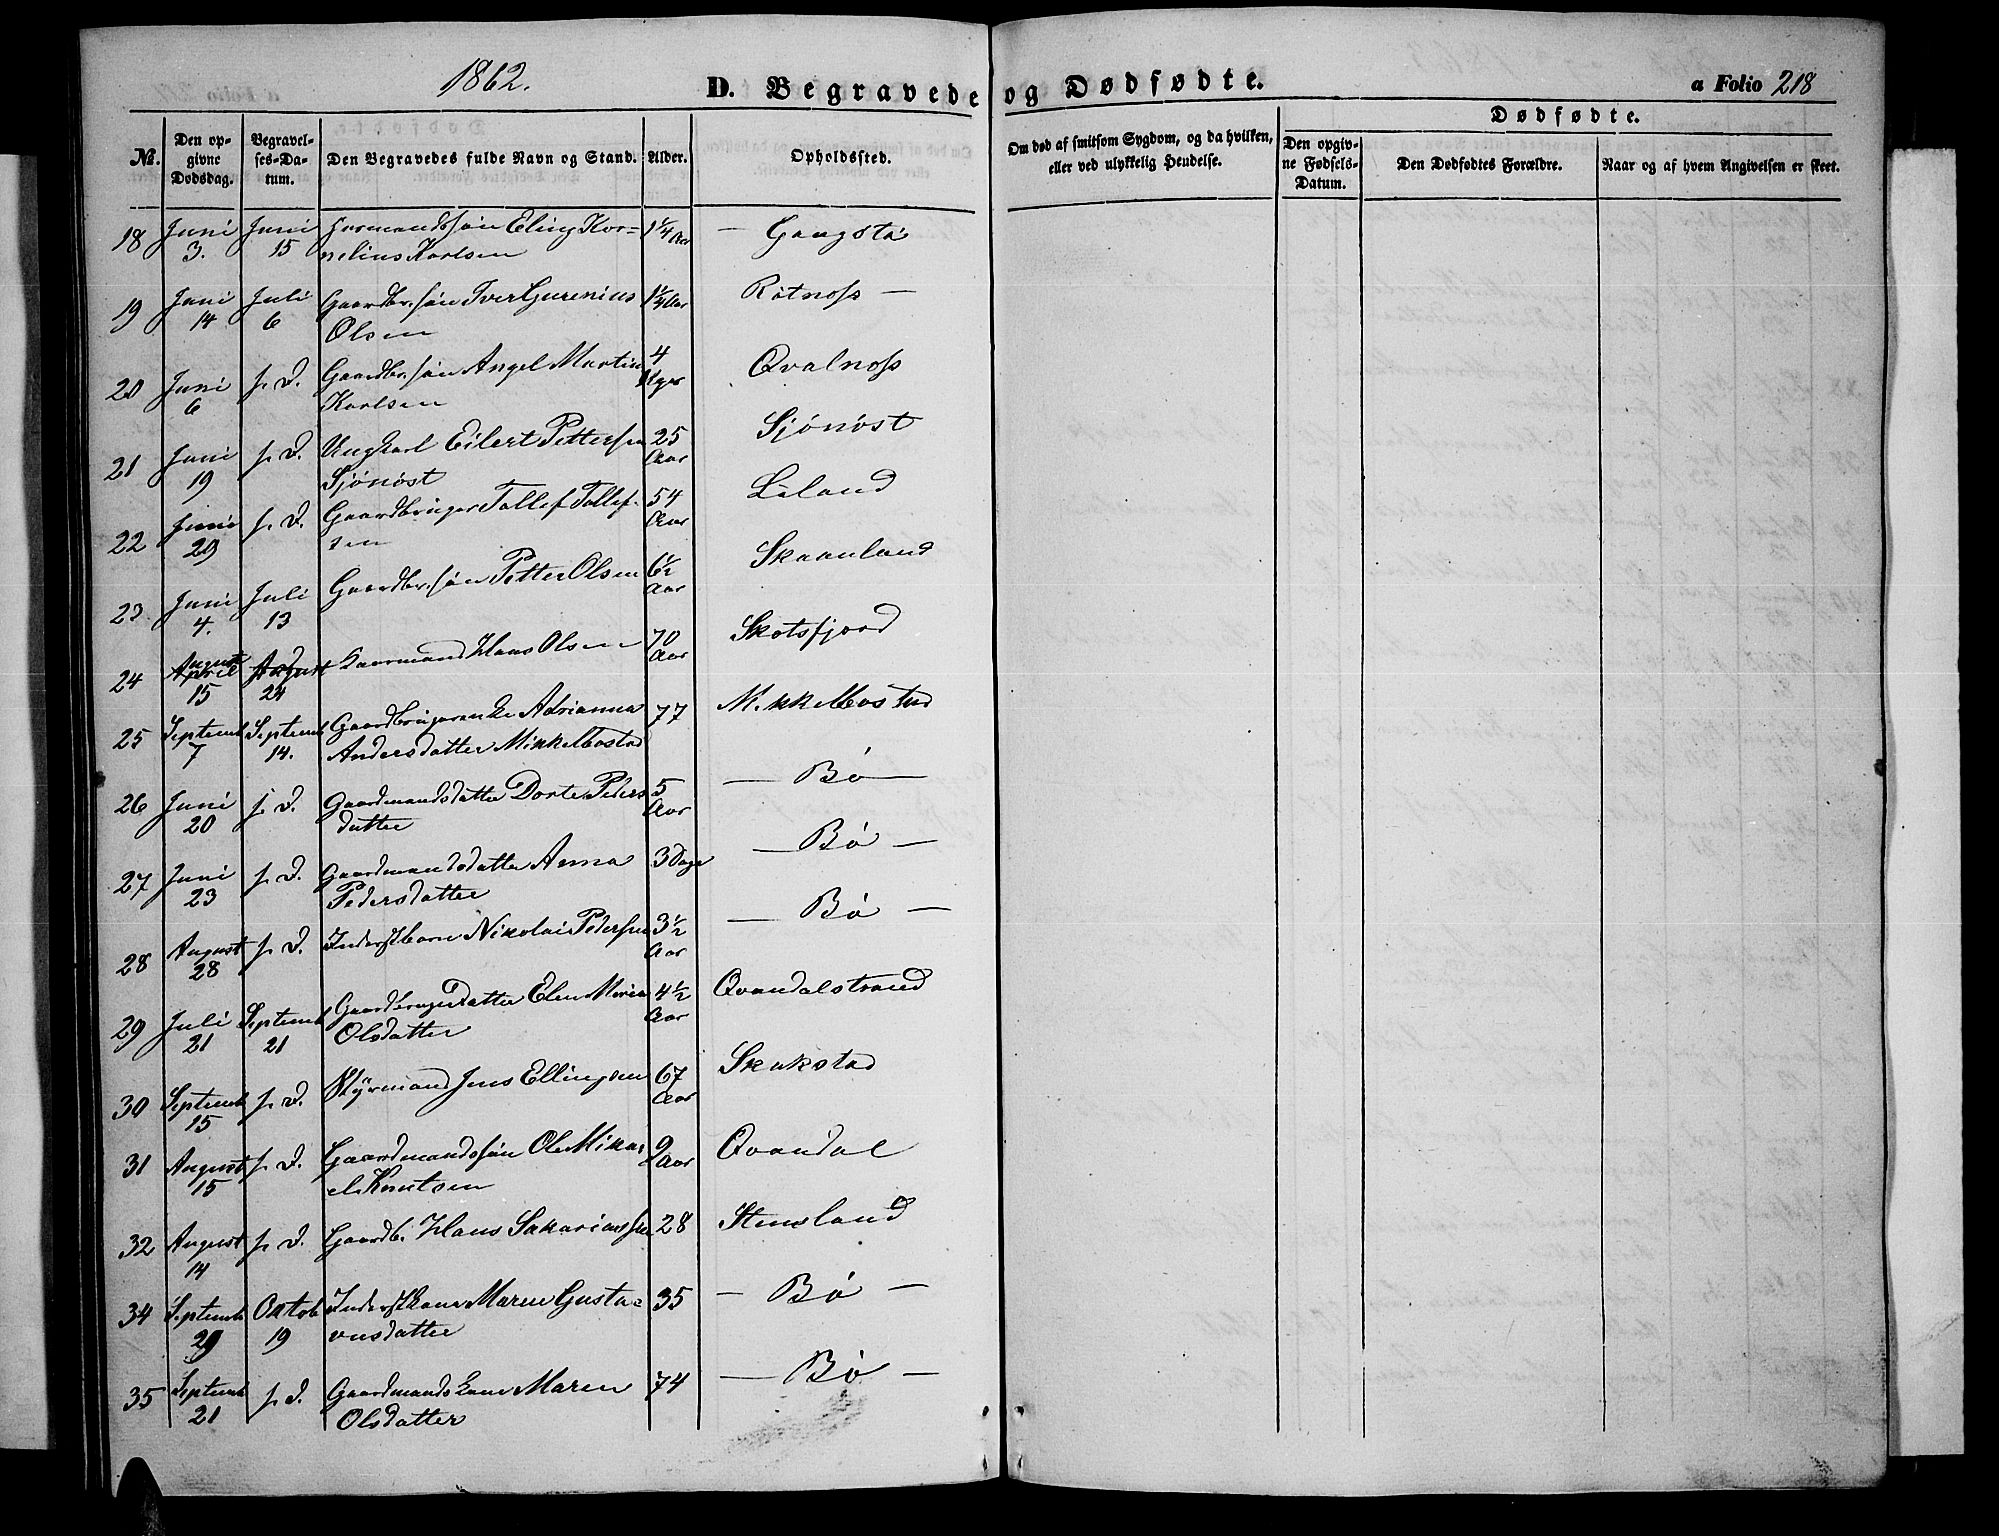 1862.
D. Begravede og Dødfødte.
a Folio 218
No.
Den opgivne Dødsdag.
Begravelses-Datum.
Den Begravedes fulde Navn og Stand.
Alder.
Opholdssted.
Om død af smitsom Sygdom, og da hvilken, eller ved ulykkelig Hendelse.
Dødfødte.
Den opgivne Fødsels-Datum.
Den Dødfødtes Forældre.
Naar og af hvem Angivelsen er skeet.
18 Juni 3. Juni 15 Eling Kor= 1¼ Aar — Gangstå
nelius Karlsen
19 Juni 14 Juli 6 Gaardbr. søn Iver 1¼ Aar Rötnoss —
Olsen
20 Juni 6 s. D. Gaardbr. søn Angel Martin 4 Uger Qvalnoss
Karlsen
21 Juni 19 s. D. Ungkarl Eilert Pettersen 25 Aar Sjönöst
Sjönöst
22 Juni 29 s. D. Gaardbruger Tollef Tollef- 54 Aar Liland
sen
23 Juni 4. Juli 13 Gaardbr. søn Petter Olsen 6½ Aar Skaanland
24 August 15 24 Hans Olsen 70 Aar Skotsfjord
25 Septemb 7 Septemb 14. Gaardbrugerenke Adrianna 77 Mikkelbostad
Andersdatter Mikkelbostad
26 Juni 20 s. D. Gaardmandsdatter Dorte Peders 5 Aar — Bö —
datter
27 Juni 23 s. D. Gaardmandsdatter Anna 3 Dage — Bö —
Pedersdatter
28 August 28 s. D. Inderstbarn Nikolai Pedersen 3½ Aar — Bö —
29 Juli 21 Septemb 21 Gaardbrugerdatter Elen Maria 4½ Aar Qvandalstrand
Olsdatter
30 Septemb 15 s. D. Styrmand Jens Ellingsen 67 Aar Skakstad
31 August 15 s. D. Gaardmandssön Ole Mika= 9 Aar Qvandal
el Knutsen
32 August 14 s. D. Gaardb. Hans Sakariassen 28 Stensland
34 Septemb 29 Oktob 19 Inderstkone Maren Gusta= 35 — Bö —
vusdatter
35 Septemb 21 s. D. Gaardmandskone Maren 74 — Bö —
Olsdatter